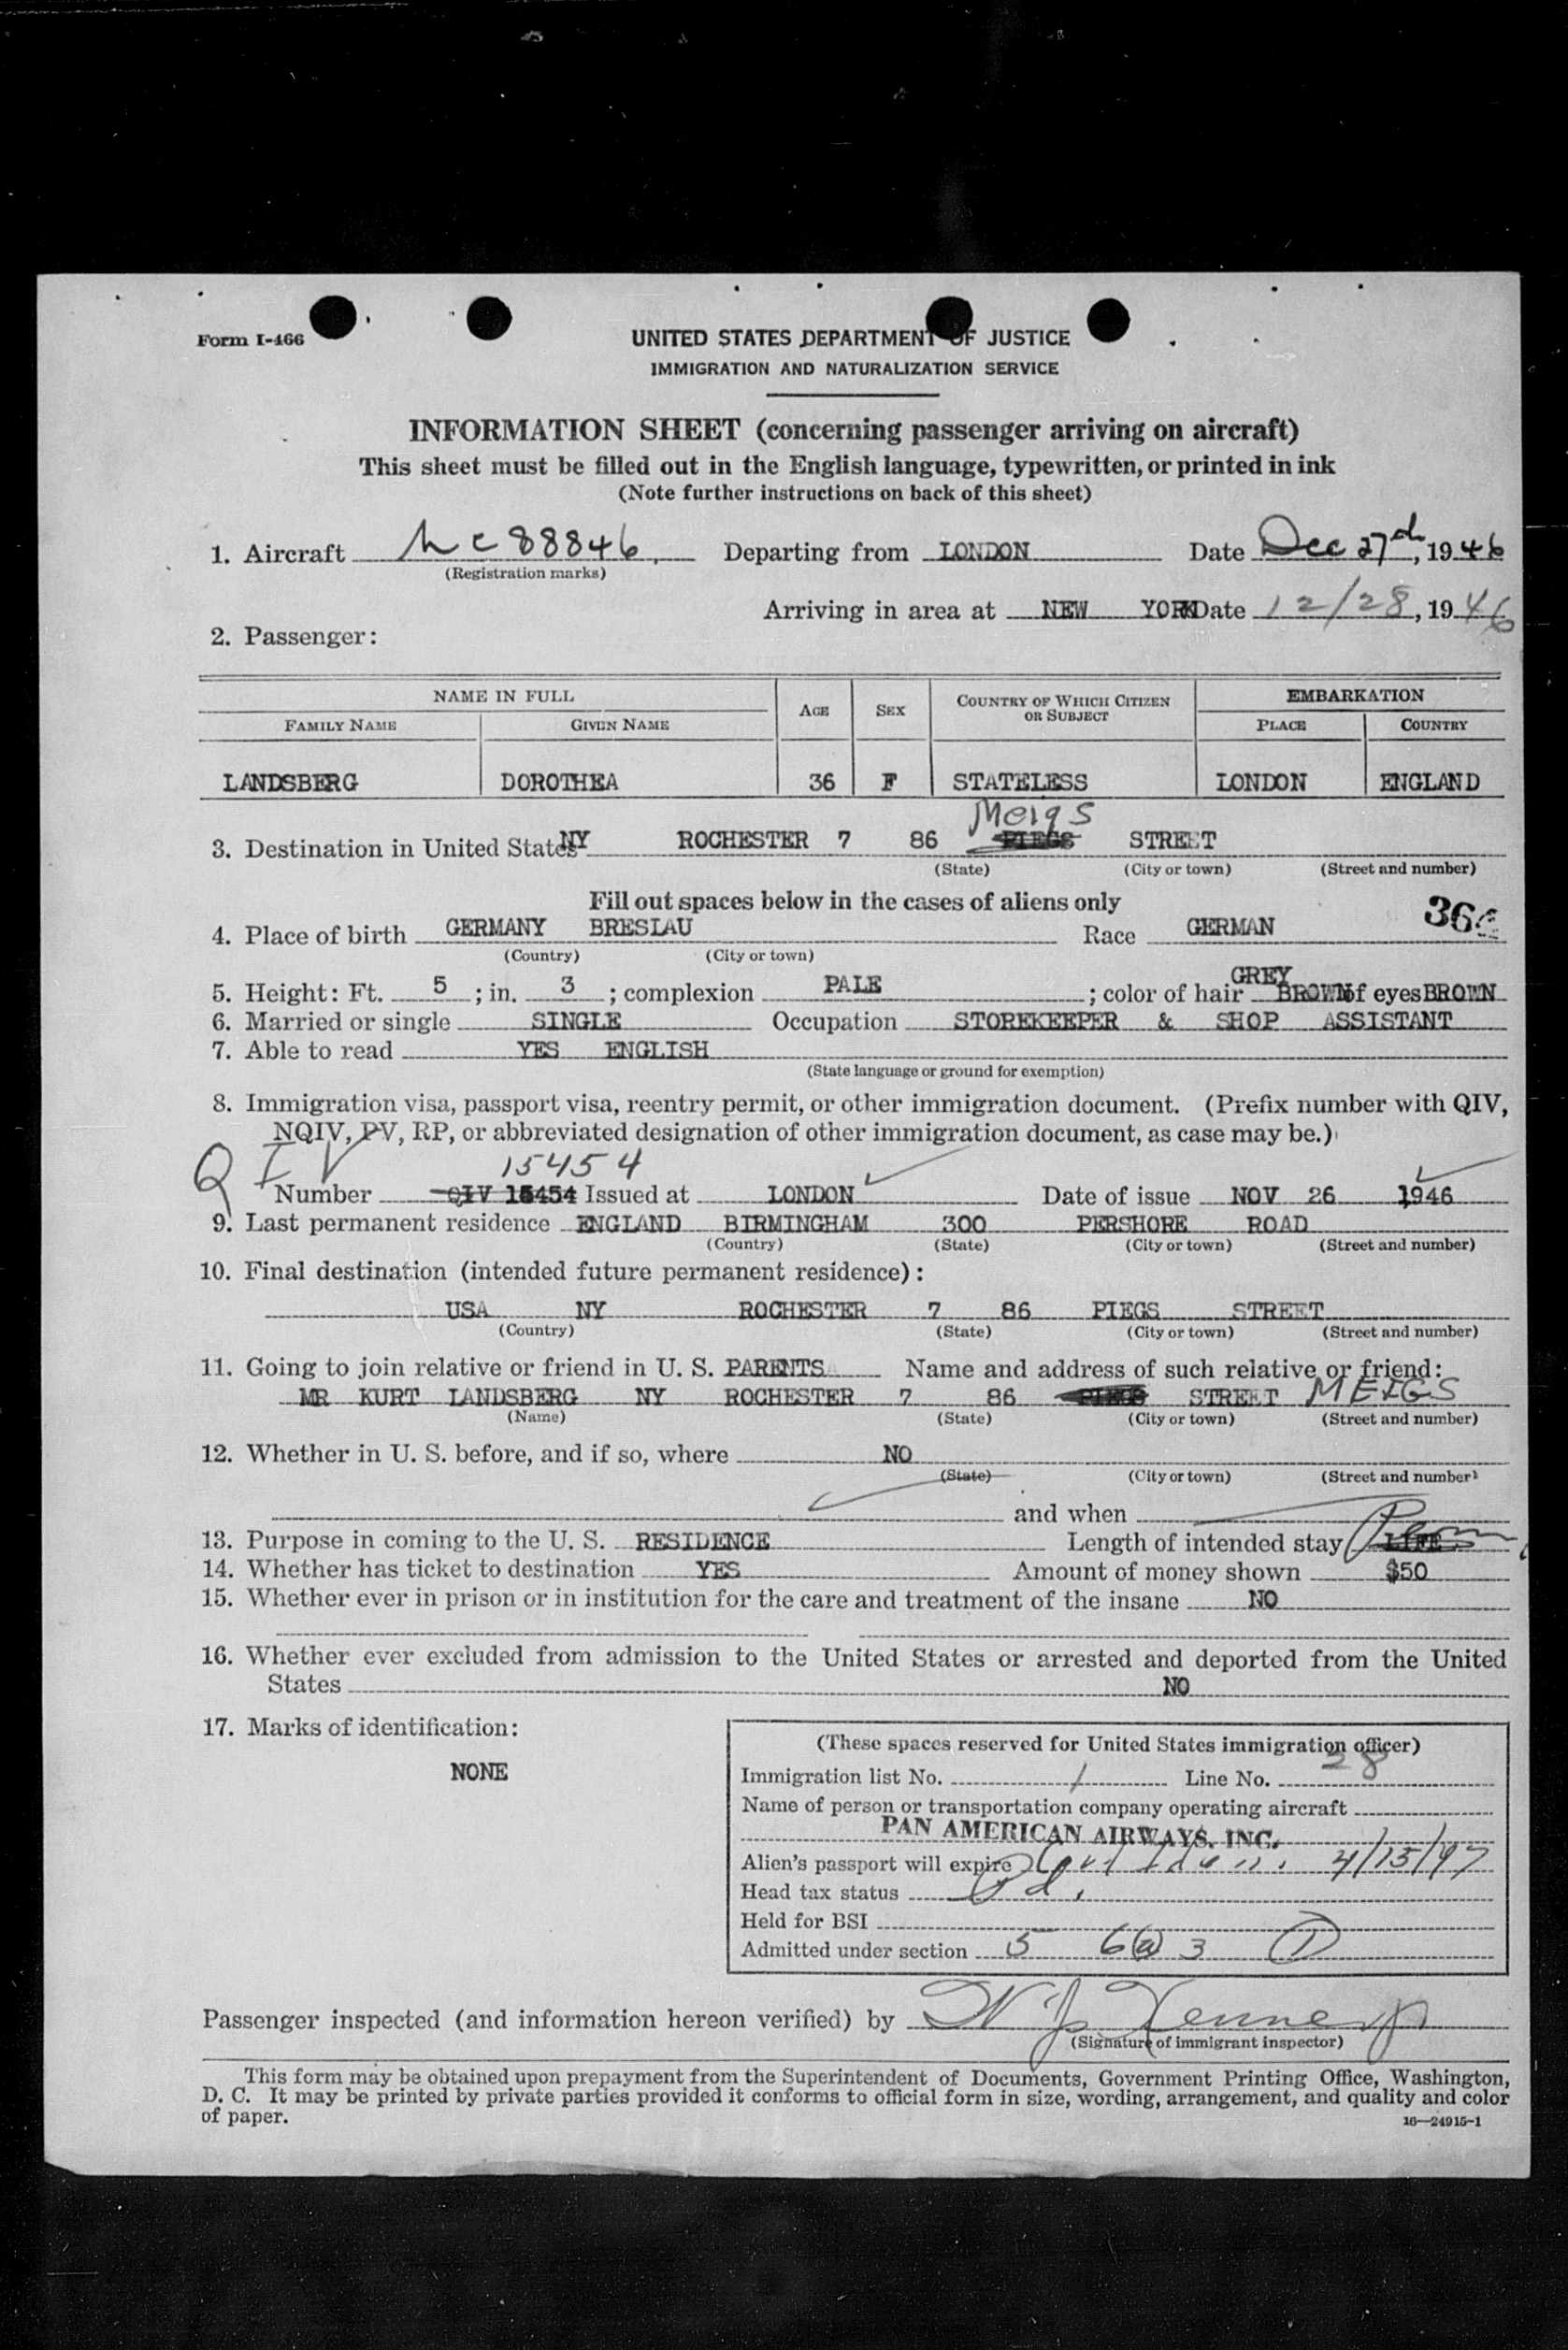 Form I-466
UNITED STATES DEPARTMENT OF JUSTICE
IMMIGRATION AND NATURALIZATION SERVICE
INFORMATION SHEET (concerning passenger arriving on aircraft)
This sheet must be filled out in the English language, typewritten, or printed in ink
(Note further instructions on back of this sheet)
1. Aircraft Nc 88846 Departing from LONDON Date Dec 27th, 1946
(Registration marks)
Arriving in area at NEW YORK Date 12/28, 1946
2. Passenger:
NAME IN FULL AGE SEX COUNTRY OF WHICH CITIZEN OR SUBJECT EMBARKATION
FAMILY NAME GIVEN NAME PLACE COUNTRY
LANDSBERG DOROTHEA 36 F STATELESS LONDON ENGLAND
Meigs
3. Destination in United States NY ROCHESTER 7 86 PIEGS STREET
(State) (City or town) (Street and number)
Fill out spaces below in the cases of aliens only
4. Place of birth GERMANY BRESLAU Race GERMAN
(Country) (City or town)
GREY
5. Height: Ft. 5; in. 3; complexion PALE; color of hair BROWN of eyes BROWN
6. Married or single SINGLE Occupation STOREKEEPER & SHOP ASSISTANT
7. Able to read YES ENGLISH
(State language or ground for exemption)
8. Immigration visa, passport visa, reentry permit, or other immigration document. (Prefix number with QIV,
NQIV, PV, RP, or abbreviated designation of other immigration document, as case may be.)
QIV 15454
Number QIV 15454 Issued at LONDON Date of issue NOV 26 1946
9. Last permanent residence ENGLAND BIRMINGHAM 300 PERSHORE ROAD
(Country) (State) (City or town) (Street and number)
10. Final destination (intended future permanent residence):
USA NY ROCHESTER 7 86 PIEGS STREET
(Country) (State) (City or town) (Street and number)
11. Going to join relative or friend in U. S. PARENTS Name and address of such relative or friend:
MR KURT LANDSBERG NY ROCHESTER 7 86 PIEGS STREET MEIGS
(Name) (State) (City or town) (Street and number)
12. Whether in U. S. before, and if so, where NO
(State) (City or town) (Street and number)
and when
13. Purpose in coming to the U. S. RESIDENCE Length of intended stay LIFE Perm
14. Whether has ticket to destination YES Amount of money shown $50
15. Whether ever in prison or in institution for the care and treatment of the insane NO
16. Whether ever excluded from admission to the United States or arrested and deported from the United
States NO
17. Marks of identification:
NONE
(These spaces reserved for United States immigration officer)
Immigration list No. 1 Line No. 28
Name of person or transportation company operating aircraft
PAN AMERICAN AIRWAYS, INC.
Alien's passport will expire 4/15/47
Head tax status Pd.
Held for BSI
Admitted under section 5 6(a) 3 (1)
Passenger inspected (and information hereon verified) by
(Signature of immigrant inspector)
This form may be obtained upon prepayment from the Superintendent of Documents, Government Printing Office, Washington,
D. C. It may be printed by private parties provided it conforms to official form in size, wording, arrangement, and quality and color
of paper.
16—24915-1